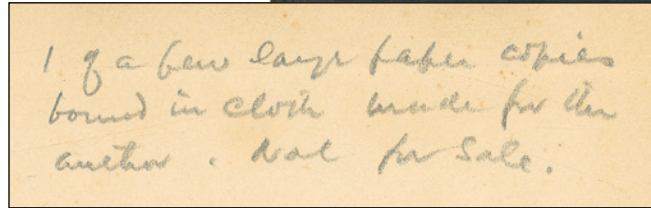 1 of a few large paper copies
bound in cloth made for the
author. Not for Sale.